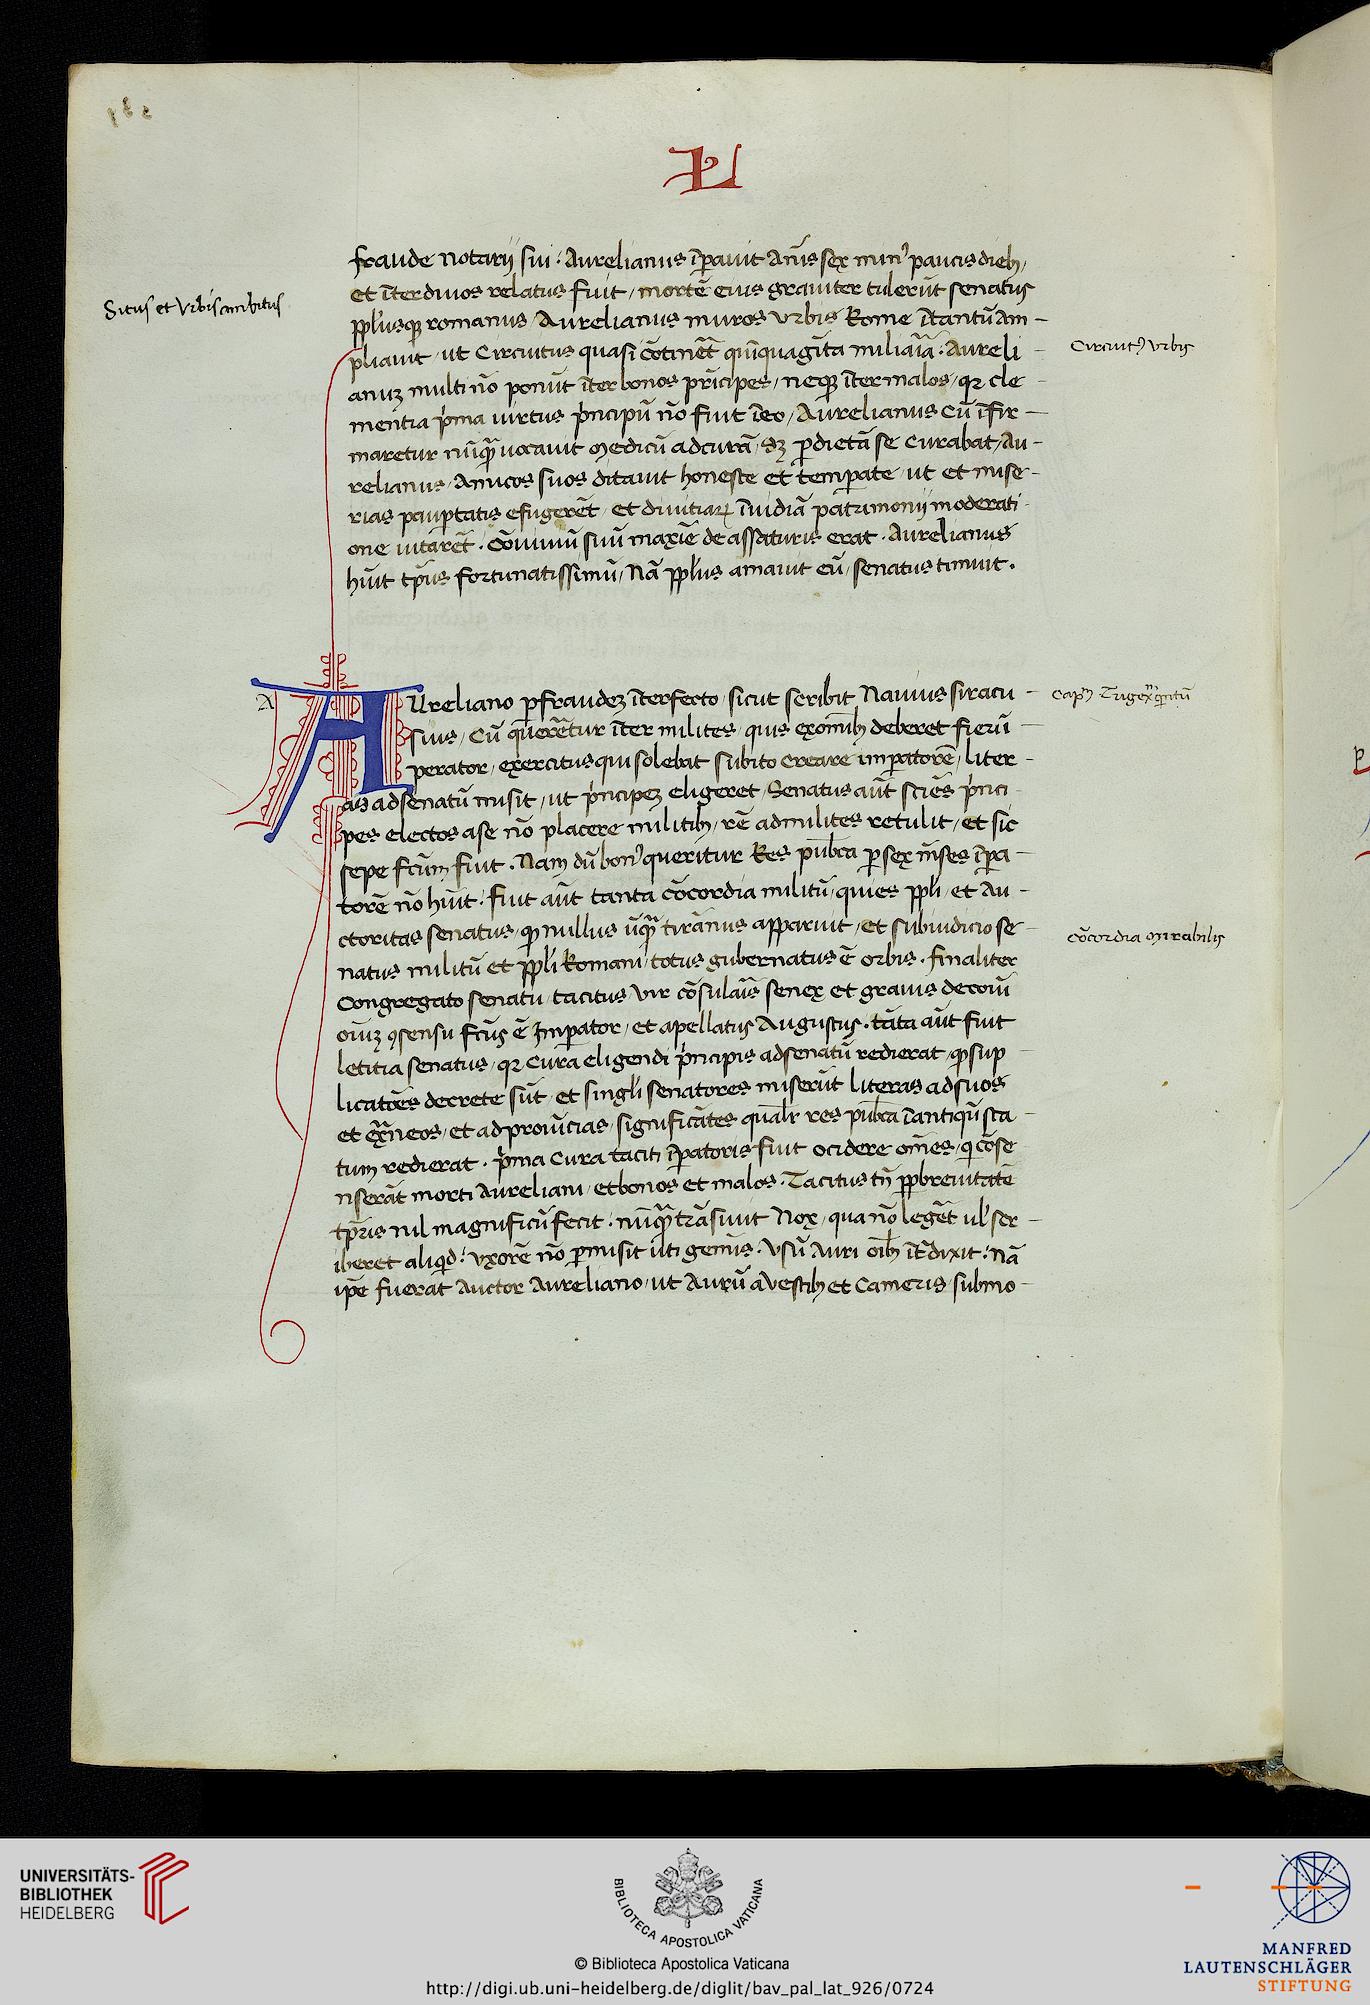 L
fraude notarij sui · Aurelianus īpauit Anīs sex min᾽ paucis dieb;
et īter diuos relatus fuit / mortē eius grauiter tulerūt senatus
Situs et vrbis ambitus
pplusq; romanus / Aurelianus muros vrbis Rome ītantū Am-
pliauit / ut Circuitus quasi cōtinēt quīquagīta miliaīa · Aureli-
Circuit᾽ vrbis
anuz multi nō ponūt īter bonos prīcipes / neq; īter malos / qr cle-
mentia p̓ma uirtus p̓ncipū nō fuit ī eo / Aurelianus Cū īfir-
maretur nūq̄ uocauit medicū ad curā / sz p dietā se curabat / Au-
relianus / Amicos suos ditauit honeste et temperate / ut et mise-
rias pauptatis efugerēt / et diuitiaꝝ īuidiā patrimonij moderati-
one uitarēt · Cōuiuiū suū maxīe de assaturis erat · Aurelianus
hūit tp̄us fortunatissimū / Nā pplus amauit eū / senatus timuit ·
A
AUreliano p fraudez īterfecto / sicut scribit Nauius siracu-
Cap᾽ Trigex᾽ quītū
sius / Cū querēretur īter milites / quis ex omīb; deberet fieri ī
perator / exercitus qui solebat subito creare imperatorē / liter-
as ad senatū misit / ut p̓ncipez eligeret / Senatus aūt sciēs p̓nci-
pes electos a se nō placere militib; / rē ad milites retulit / et sic
sepe fc̄um fuit · Nam dū bon᾽ queritur Res pub̄ca p sex mēses īpa-
torē nō hūit · fuit aūt tanta cōcordia militū / quies ppli / et Au-
ctoritas senatus / qp nullus ūq̄ tirānus apparuit / et sub iudicio se-
cōcordia mirabilis
natus militū et ppli Romani / totus gubernatus ē orbis · finaliter
Congregato senatu / tacitus vir cōsulaīs senex et grauis decorū
oīuz ꝯsensu fc̄us ē Imperator / et apellatus Augustus · tāta aūt fuit
letitia senatus / qr cura eligendi p̓ncipis ad senatū redierat / qp sup
licatōes decrete sūt / et singli senatores miserūt literas ad suos
et exᵗ̄neos / et ad prouīcias / significātes qual̓r res pub̄ca ī antiqū sta-
tum redierat · p̓ma Cura taciti īpatoris fuit ocidere omēs / qi cōse
nserāt morti Aureliani / et bonos et malos · Tacitus tn̄ ppbreuitatē
tp̄ris nil magnificū fecit · nūq̄ trāsiuit Nox / qua nō legēt ul̓ scr-
iberet aliqid · vxorē nō pmisit uti gemis · Vsū Auri oīb; īt̄dixit · Nā
ip̄e fuerat Auctor Aureliano / ut Aurū a Vestib; et Cameris / submo-
UNIVERSITÄTS-
BIBLIOTHEK
HEIDELBERG
BIBLIOTECA APOSTOLICA VATICANA
© Biblioteca Apostolica Vaticana
http://digi.ub.uni-heidelberg.de/diglit/bav_pal_lat_926/0724
MANFRED
LAUTENSCHLÄGER
STIFTUNG